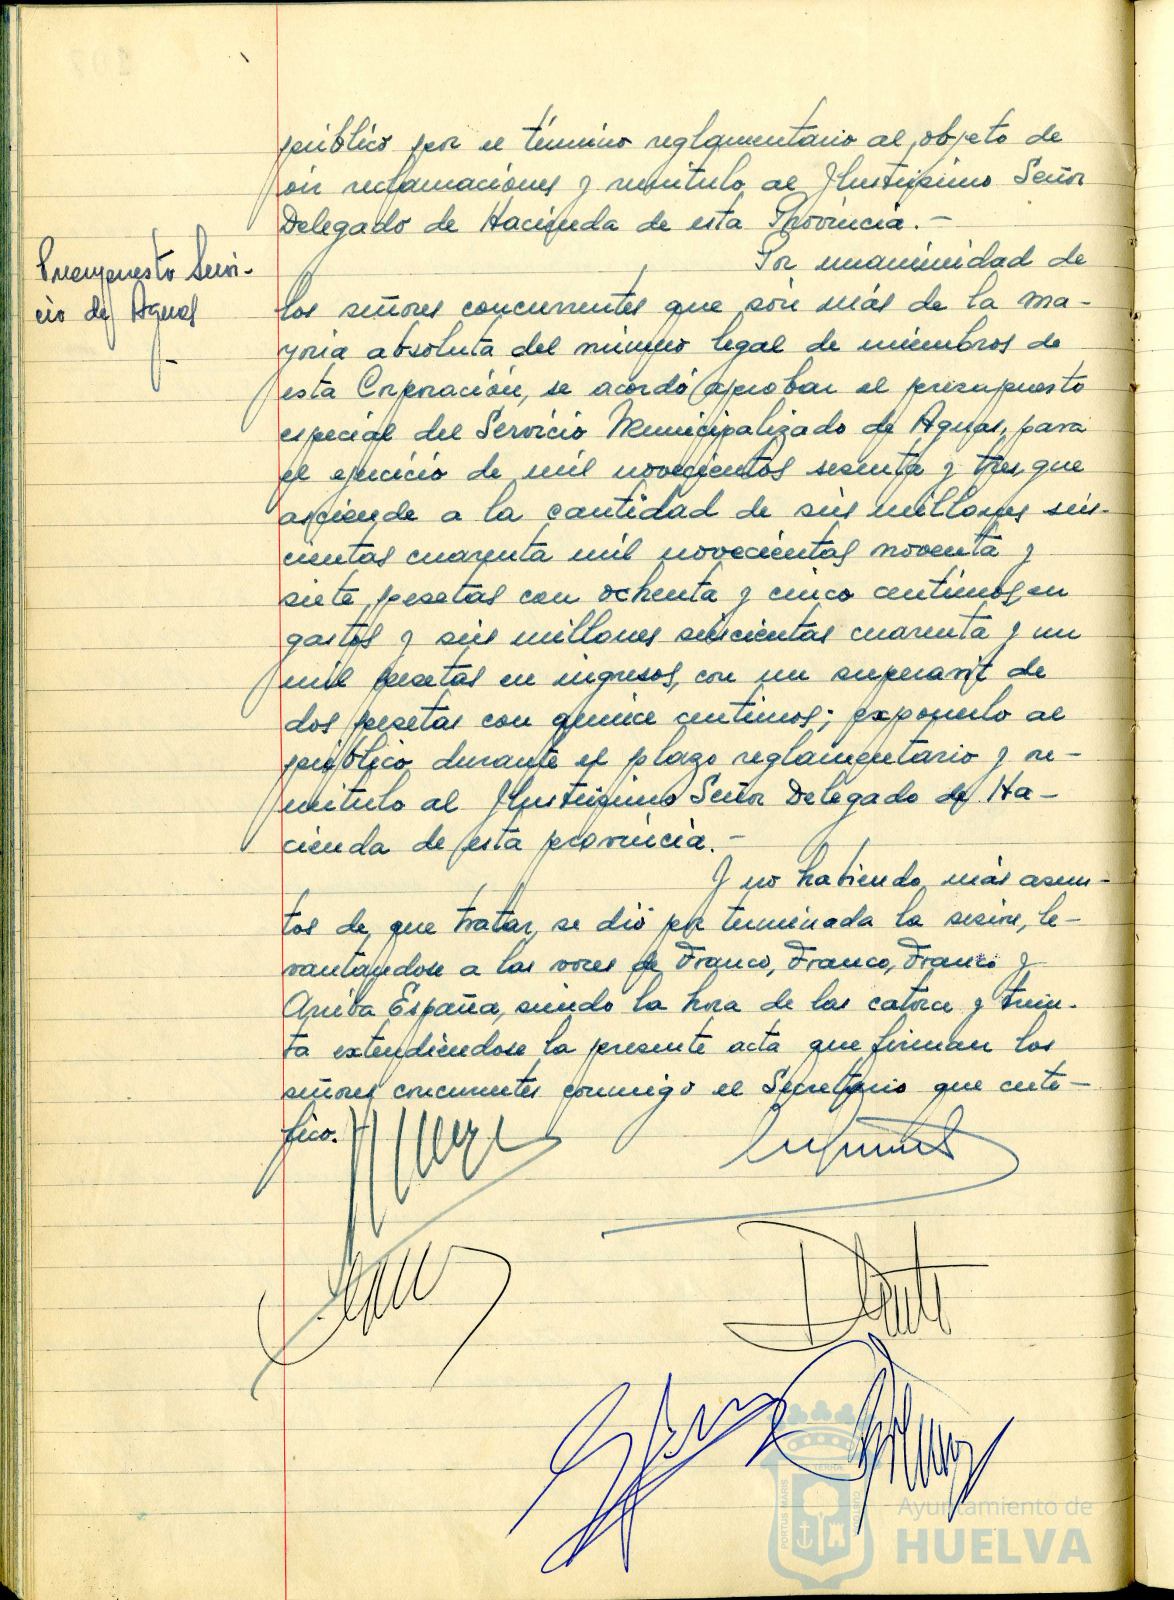 público por el término reglamentario al objeto de
oir reclamaciones y remitirlo al Ilustrísimo Señor
Delegado de Hacienda de esta Provincia.-
Presupuesto Servi-
cio de Aguas
Por unanimidad de
los señores concurrentes que son más de la ma-
yoria absoluta del número legal de miembros de
esta Corporación, se acordó aprobar el presupuesto
especial del Servicio Municipalizado de Aguas, para
el ejercicio de mil novecientos sesenta y tres, que
asciende a la cantidad de seis millones seis-
cientas cuarenta mil novecientas noventa y
siete pesetas con ochenta y cinco centimos, en
gastos y seis millones seiscientas cuarenta y un
mil pesetas en ingresos, con un superavit de
dos pesetas con quince centimos; exponerlo al
público durante el plazo reglamentario y re-
mitirlo al Ilustrísimo Señor Delegado de Ha-
cienda de esta provincia.-
Y no habiendo más asun-
tos de que tratar, se dió por terminada la sesion, le-
vantandose a las voces de Franco, Franco, Franco y
Arriba España, siendo la hora de las catorce y trein-
ta extendiéndose la presente acta que firman los
señores concurrentes conmigo el Secretario que certi-
fico.
PORTUS MARIS
Ayuntamiento de
HUELVA